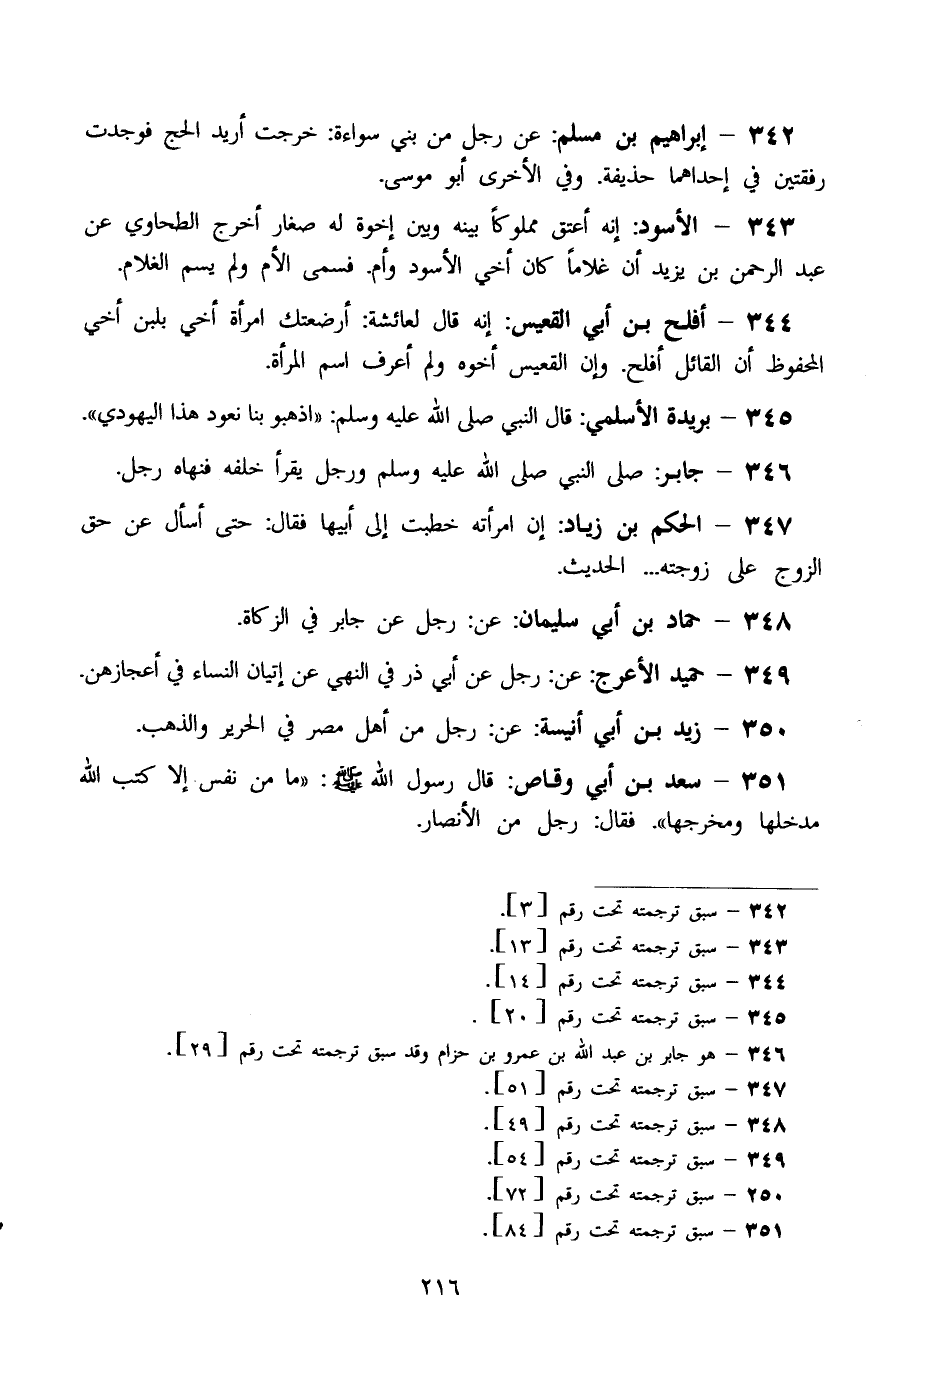 ٣٤٢ – إبراهيم بن مسلم: عن رجل من بني سواءة: خرجت أريد الحج فوجدت
رفقتين في إحداهما حذيفة. وفي الأخرى أبو موسى.
٣٤٣ – الأسود: إنه أعتق مملوكاً بينه وبين إخوة له صغار أخرج الطحاوي عن
عبد الرحمن بن يزيد أن غلاماً كان أخي الأسود وأم. فسمى الأم ولم يسم الغلام.
٣٤٤ – أفلح بن أبي القعيس: إنه قال لعائشة: أرضعتك امرأة أخي بلبن أخي
المحفوظ أن القائل أفلح. وإن القعيس أخوه ولم أعرف اسم المرأة.
٣٤٥ – بريدة الأسلمي: قال النبي صلى الله عليه وسلم: «اذهبو بنا نعود هذا اليهودي».
٣٤٦ – جابر: صلى النبي صلى الله عليه وسلم ورجل يقرأ خلفه فنهاه رجل.
٣٤٧ – الحكم بن زياد: إن امرأته خطبت إلى أبيها فقال: حتى أسأل عن حق
الزوج على زوجته... الحديث.
٣٤٨ – حماد بن أبي سليمان: عن: رجل عن جابر في الزكاة.
٣٤٩ – حميد الأعرج: عن: رجل عن أبي ذر في النهي عن إتيان النساء في أعجازهن.
٣٥٠ – زيد بن أبي أنيسة: عن: رجل من أهل مصر في الحرير والذهب.
٣٥١ – سعد بن أبي وقاص: قال رسول الله ﷺ: «ما من نفس إلا كتب الله
مدخلها ومخرجها». فقال: رجل من الأنصار.
٣٤٢ – سبق ترجمته تحت رقم [٣].
٣٤٣ – سبق ترجمته تحت رقم [١٣].
٣٤٤ – سبق ترجمته تحت رقم [١٤].
٣٤٥ – سبق ترجمته تحت رقم [٢٠] .
٣٤٦ – هو جابر بن عبد الله بن عمرو بن حزام وقد سبق ترجمته تحت رقم [٢٩].
٣٤٧ – سبق ترجمته تحت رقم [٥١].
٣٤٨ – سبق ترجمته تحت رقم [٤٩].
٣٤٩ – سبق ترجمته تحت رقم [٥٤].
٢٥٠ – سبق ترجمته تحت رقم [٧٢].
٣٥١ – سبق ترجمته تحت رقم [٨٤].
٢١٦